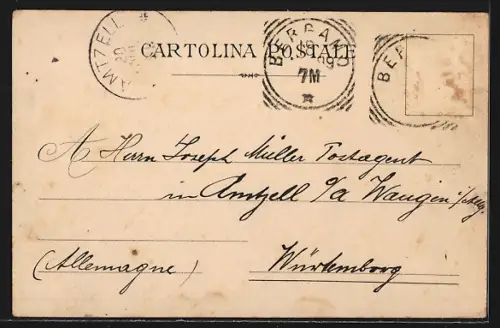 AMTZELL
CARTOLINA POSTALE
BERGAMO
7M
BER
A Herrn Joseph Müller Postagent
in Amtzell o/a Wangen i/Allg.
(Allemagne) Würtemberg